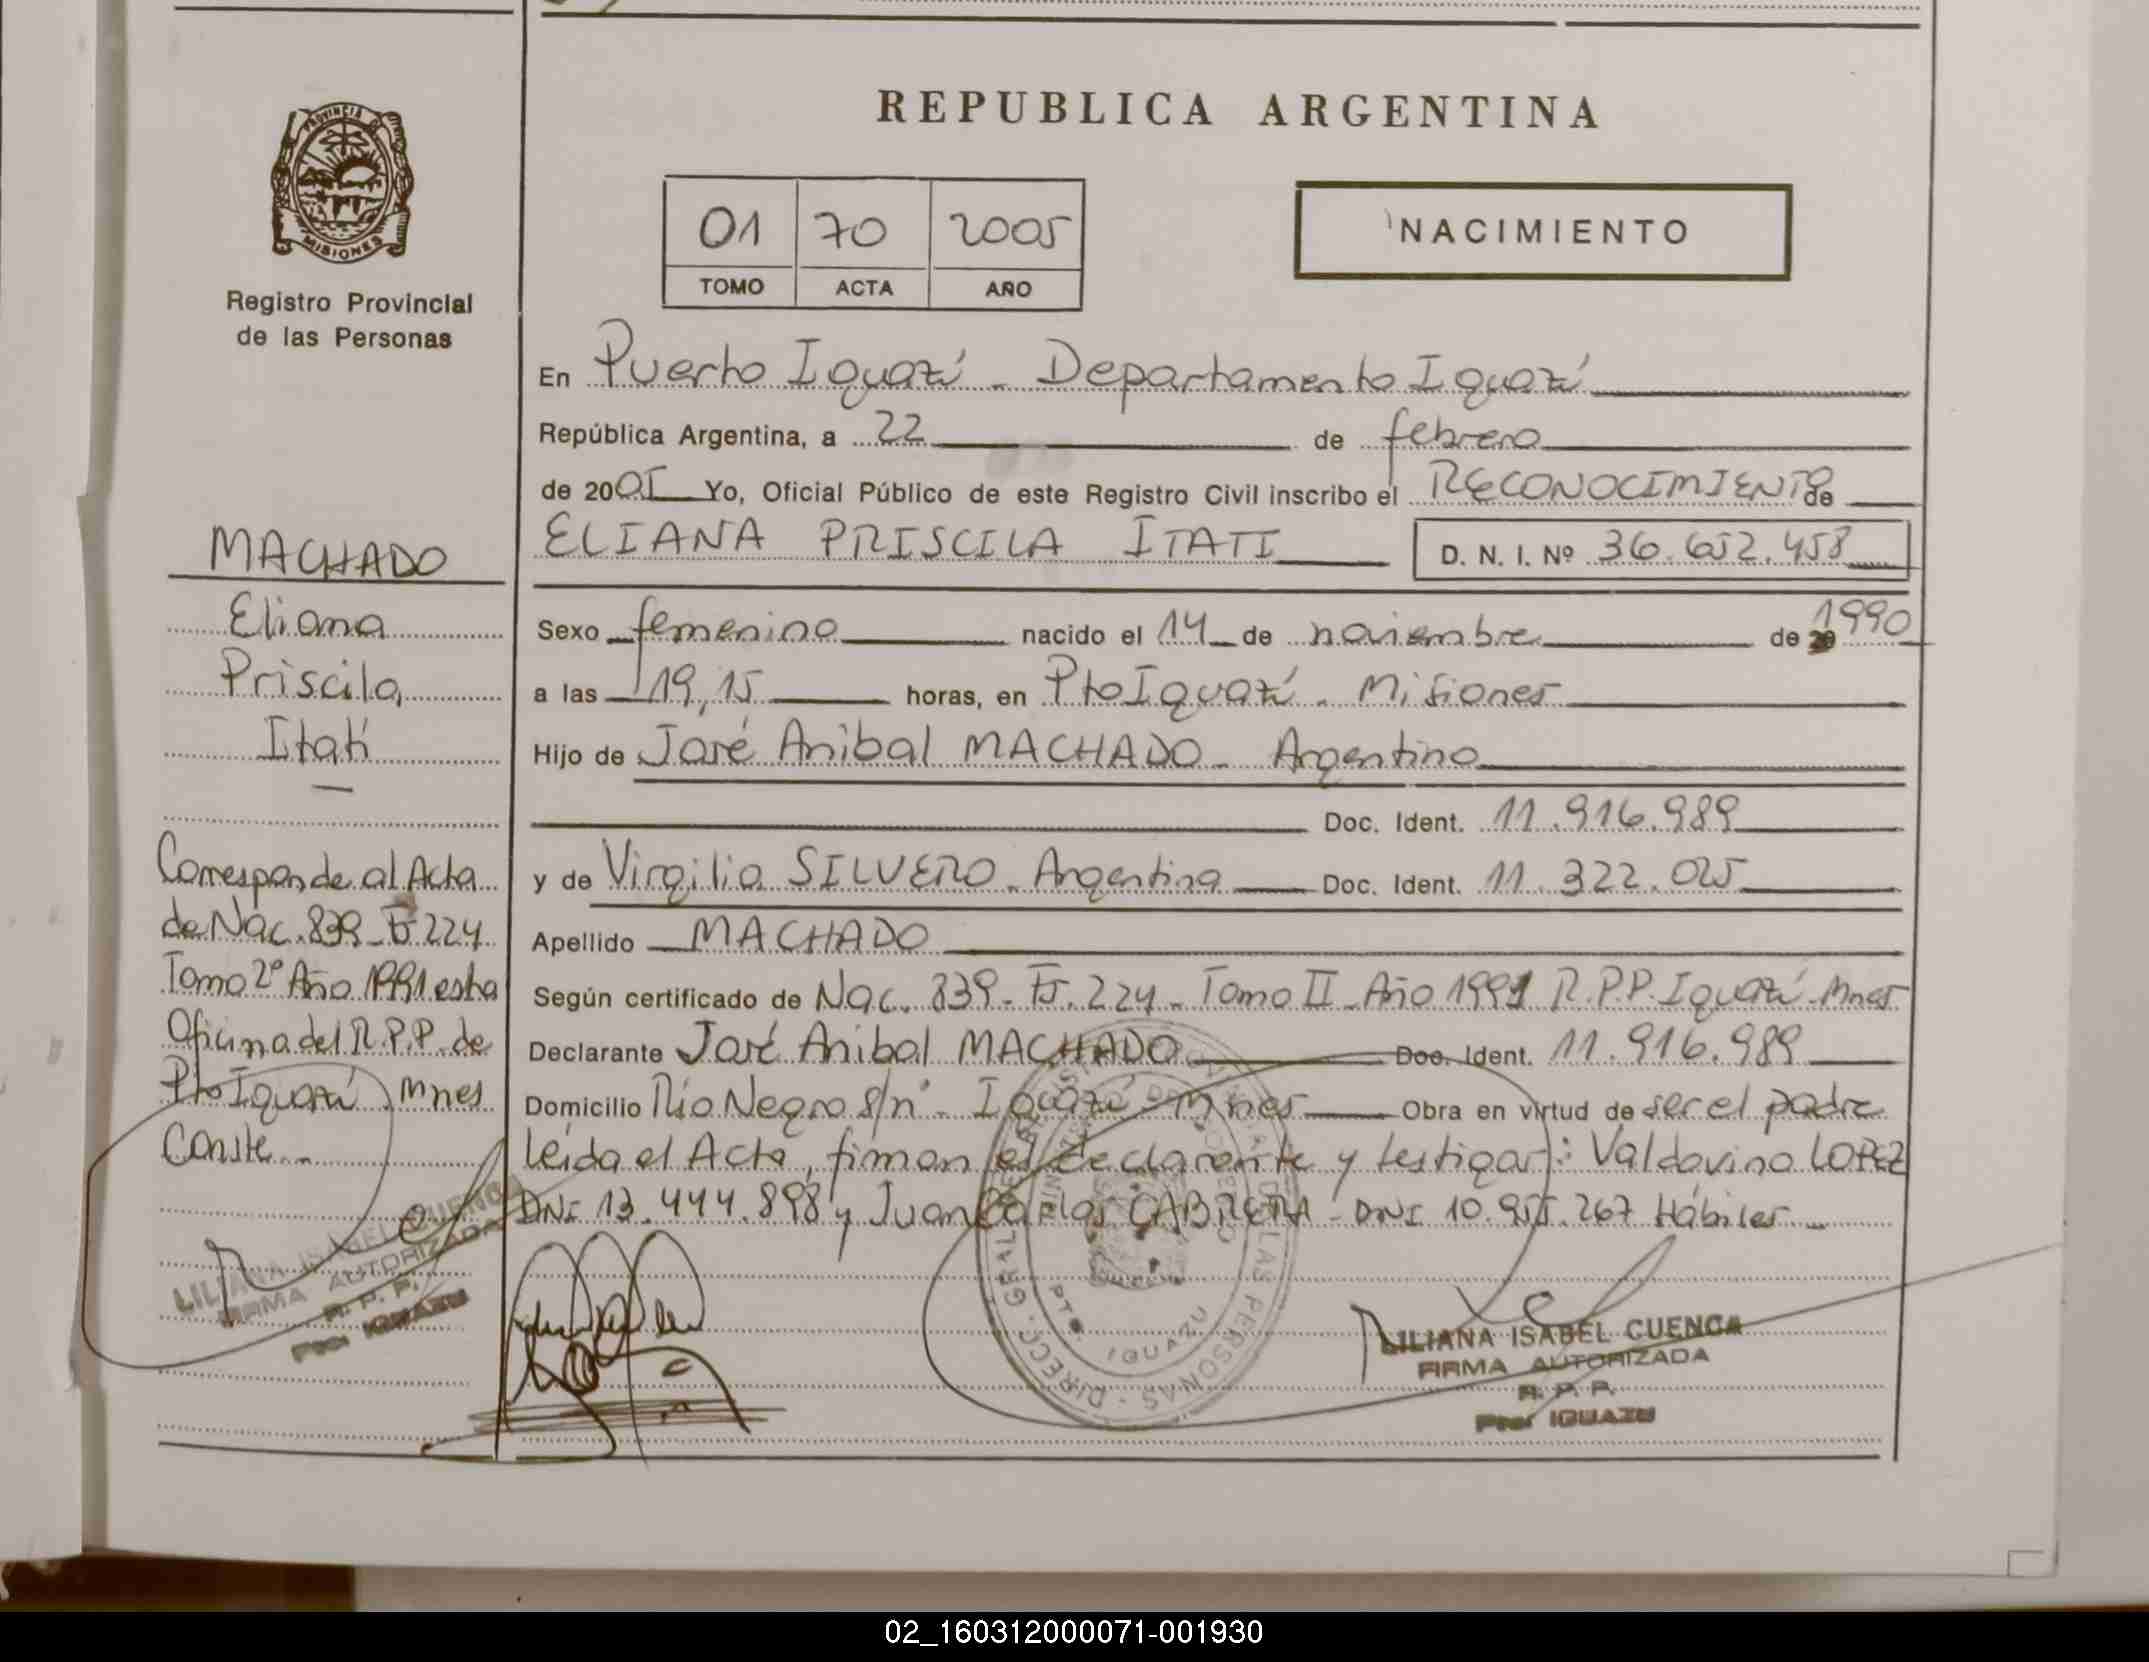 REPUBLICA ARGENTINA
PROVINCIA DE MISIONES
Registro Provincial
de las Personas
01 70 2005
TOMO ACTA AÑO
NACIMIENTO
En Puerto Iguazú - Departamento Iguazú
República Argentina, a 22 de febrero
de 2005 Yo, Oficial Público de este Registro Civil inscribo el RECONOCIMIENTO de
ELIANA PRISCILA ITATI D. N. I. Nº 36.652.458
Sexo femenino nacido el 14 de noviembre de 1990
a las 19,15 horas, en Pto Iguazú - Misiones
Hijo de José Anibal MACHADO - Argentino
Doc. Ident. 11.916.989
y de Virgilia SILVERO - Argentina Doc. Ident. 11.322.025
Apellido MACHADO
Según certificado de Nac. 839 - Fº 224 - Tomo II - Año 1991 R.P.P. Iguazú - Mnes
Declarante José Anibal MACHADO Doc. Ident. 11.916.989
Domicilio Rio Negro s/nº - Iguazú - Mnes Obra en virtud de ser el padre
leída el Acta, firman el declarante y testigos: Valdovino LOPEZ
DNI 13.444.898 y Juan Carlos CABRERA - DNI 10.955.267 Hábiles -
MACHADO
Eliana
Priscila
Itatí
Corresponde al Acta
de Nac. 839 - Fº 224
Tomo 2º Año 1991 esta
Oficina del R.P.P. de
Pto Iguazú - Mnes
Conste -
LILIANA ISABEL CUENCA
FIRMA AUTORIZADA
R. P. P.
Pto. IGUAZU
DIRECC. GRAL. DE LAS PERSONAS
PTO. IGUAZU
LILIANA ISABEL CUENCA
FIRMA AUTORIZADA
R. P. P.
Pto. IGUAZU
02_160312000071-001930